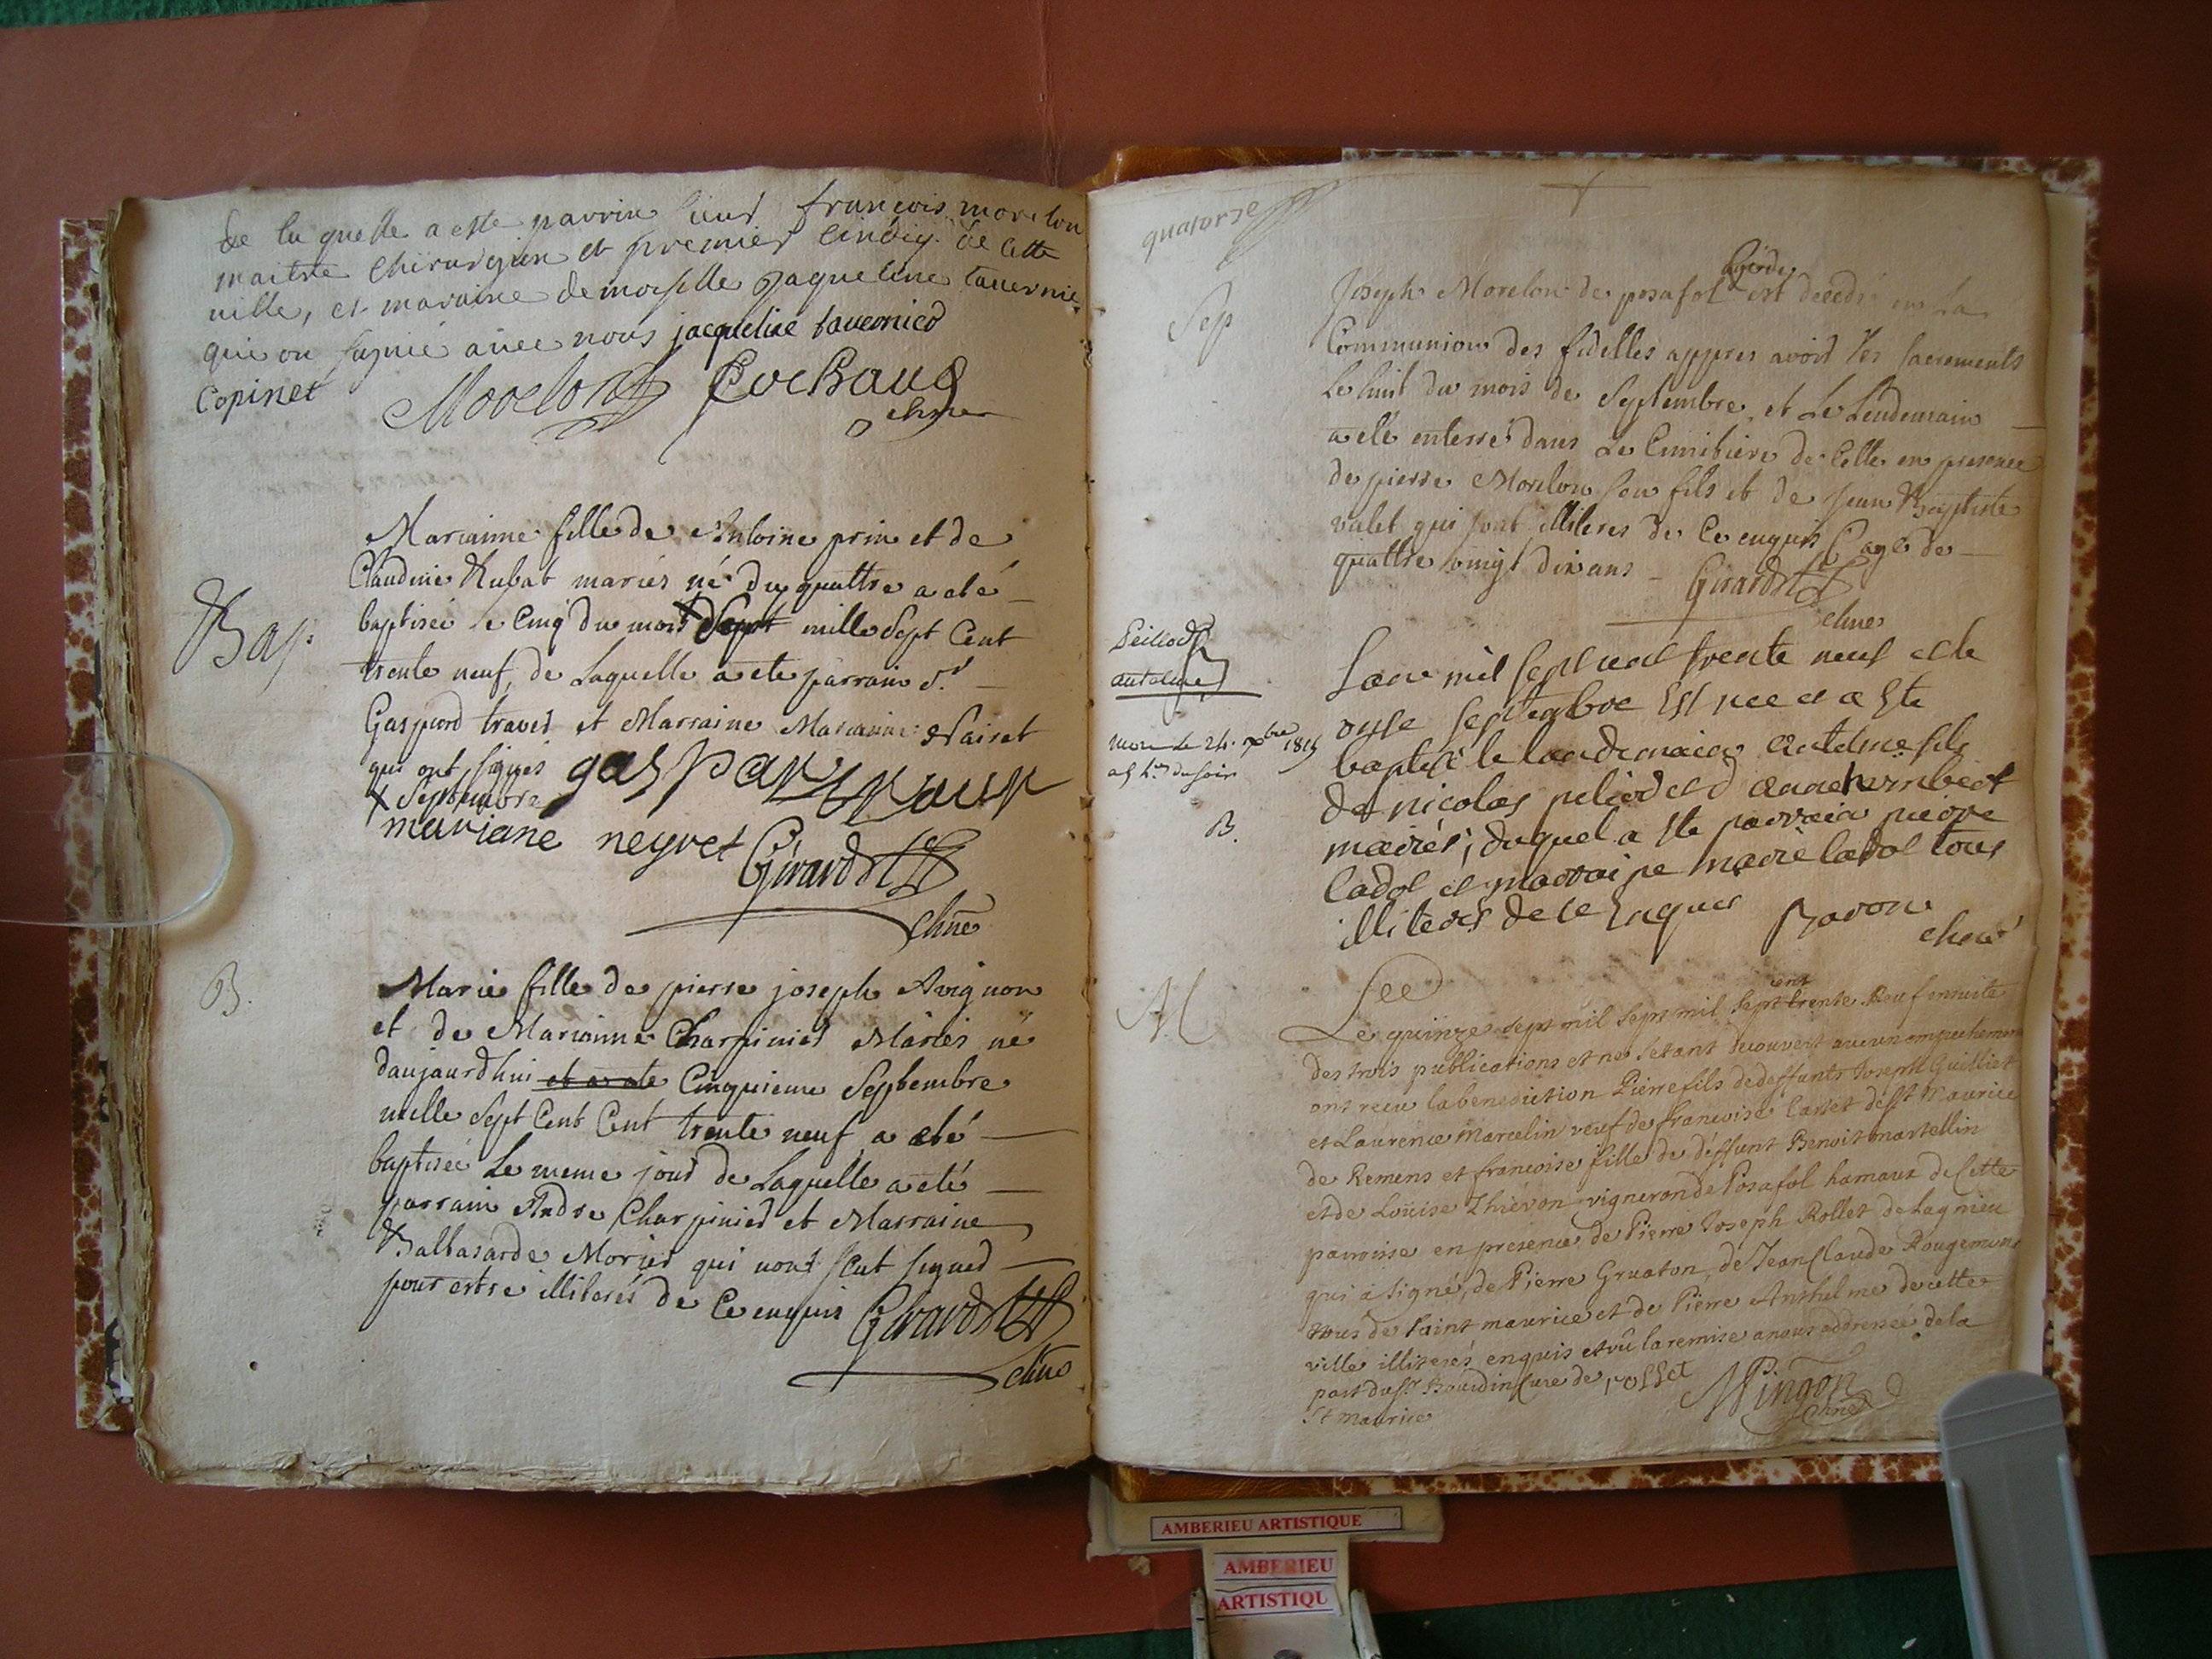 de la quelle a este parrin sieur françois morelon
maitre chirurgien et premier cindiq de cette
uille, et maraine demoiselle Jaqueline tauernie
qui on signié auec nous jacqueline tavernier
Copinet Morelon Cochaud
chner
Marianne fille de Antoine prin et de
Claudine Rubat mariés né du quattre a eté
Bap.
baptisée le cinq du mois mille sept Cent
trente neuf, de Laquelle a ete parrain Sr.
Gaspard traver et Marraine Marianne Nairet
qui ont signés gaspar
x Septembre
mariane neyret Girardet
chne
B.
Marie fille de pierre joseph Avignon
et de Marianne Charpinier Mariés né
daujaurdhui et a ete Cinquieme Septembre
mille sept Cent Cent trente neuf a eté
baptisée Le meme jour de Laquelle a eté
parrain Andre Charpinier et Marraine
Baltasarde Morier qui nont scut signer
pour estre illiterés de Ce enquis Girardet
chne
quatorse
Sep
Joseph Morelon de posafol est decedé en La
Communion des fidelles appres avoir les sacrements
Le huit du mois de Septembre et Le Lendemain
a eté enterré dans Le Cimitiere de Cette en presence
de pierre Morelon son fils et de Jean Baptiste
valet qui sont illiteres de Ce enquis agé de
quattre vingt dix ans Girardet
chne
Peillod
antelme
mort le 24. 1815
a 5 h. du soir
B.
Lan mil sept cent trente neuf et le
onse septembre Est nee et a Ete
baptisé le landemain antelme fils
de nicolas peliod et danne humbert
mairiés, duquel a Ete parrain pierre
ladol et marraine marie ladol tous
illiteres de ce Enquis Baron
chne
M
Lee
Le quinze sept mil sept mil sept cent trente neuf ensuite
des trois publications et ne setant decouvert aucun empechement
ont recu la benediction Pierre fils de deffunts Joseph Guilliet
et Laurence Marcelin veuf de francoise Carret de St Maurice
de Remens et francoise fille de deffunt Benoit martellin
et de Loüise Thievon vigneron de Posafol hamaux de Cette
parroisse en presence de Pierre Joseph Rollet de Lagnieu
qui a signé, de Pierre Gruaton, de Jean Claude Rougemont
tous de Saint maurice et de Pierre Anthelme de cette
ville illiterés enquis et vû la remise a nous addressée de la
part du Sr. Bourdin Cure de rollet
St maurice MPingon
chne
AMBERIEU ARTISTIQUE
AMBERIEU
ARTISTIQU